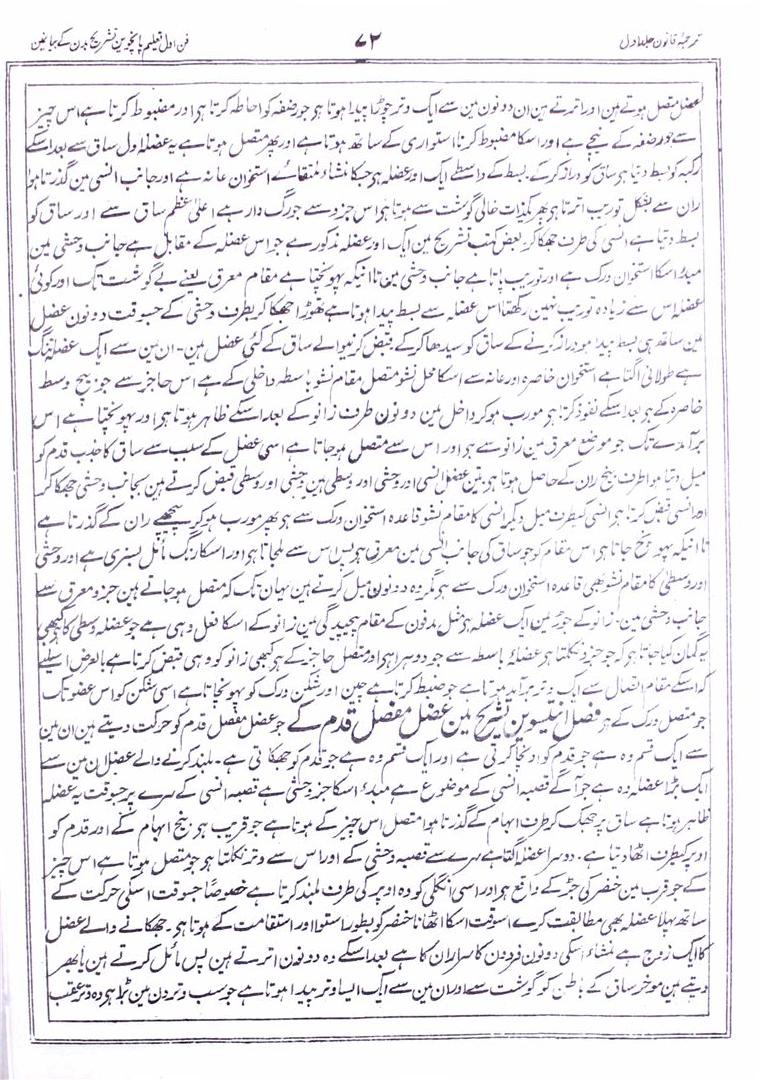 ترجمۂ قانون جلد اول ۷۲ فن اول تعلیم پانچوین تشریح بدن کے بیانمین
عضل متصل ہوتے ہین اور اترتے ہین ان دونون مین سے ایک وتر چوڑا پیدا ہوتا ہو جو رضفہ کو احاطہ کرتا ہو اور مضبوط کرتا ہے اس چیز
سے جو رضفہ کے نیچے ہے اور اسکا مضبوط کرنا استواری کے ساتھ ہوتا ہے اور پھر متصل ہوتا ہے یہ عضلہ اول ساق سے بعد اسکے
رکبہ کو بسط دیتا ہو ساق کو دراز کرکے۔ بسط کے واسطے ایک اور عضلہ ہو جسکا منشاء ملتقاے استخوان عانہ ہے اور جانب انسی مین گذرتا ہوا
ران سے بشکل توریب اترتا ہو پھر خالی گوشت سے ہوتا ہو اس جزو سے جو رگ دار ہے اعلی عظم ساق سے اور ساق کو
بسط دیتا ہے انسی کی طرف جھکا کر بعض کتب تشریح مین ایک اور عضلہ مذکور ہے جو اس عضلہ کے مقابل ہے جانب وحشی مین
مبدا اسکا استخوان ورک ہے اور توریب پاتا ہے جانب وحشی مین تا اینکہ پہونچتا ہے مقام معرق یعنے بے گوشت تک اور کوئی
عضلہ اس سے زیادہ توریب نہین رکھتا اس عضلہ سے بسط پیدا ہوتا ہے تھوڑا جھکا کر بطرف وحشی کے جسوقت دونون عضل
مین ساتھ ہی بسط پیدا ہو دراز کرنے کے ساق کو سیدھا کرکے۔ قبض کرنیوالے ساق کے کئی عضل ہین۔ ان مین سے ایک عضلہ تنگ
ہے طولانی اگتا ہے استخوان خاصرہ اور عانہ سے اسکا محل نشو متصل مقام نشو باسطہ داخلی کے ہے اس حاجز سے جو بیچ وسط
خاصرہ کے ہو بعد اسکے نفوذ کرتا ہو مورب ہوکر داخل مین دونون طرف زانو کے بعد اسکے ظاہر ہوتا ہو اور پہونچتا ہے اس
برآمدے تک جو موضع معرق مین زانو سے ہو اور اس سے متصل ہو جاتا ہے اسی عضل کے سبب سے ساق کا جذب قدم کو
میل دیتا ہوا طرف بیخ ران کے حاصل ہوتا ہو تین عضل انسی اور وحشی اور وسطی ہین وحشی اور وسطی قبض کرتے ہین بجانب وحشی جھکا کر
اور انسی قبض کرتا ہو انسی کیطرف میل دیکر انسی کا مقام نشو قاعدہ استخوان ورک سے ہو پھر مورب ہوکر پیچھے ران کے گذرتا ہے
تا اینکہ پہونچ جاتا ہو اس مقام کو جو ساق کی جانب انسی مین معرق ہو پس اس سے ملجاتا ہو اور اسکا رنگ مائل بسبزی ہے اور وحشی
اور وسطی کا مقام نشو بھی قاعدہ استخوان ورک سے ہو مگر وہ دونون میل کرتے ہین یہان تک کہ متصل ہو جاتے ہین جزو معرق سے
جانب وحشی مین۔ زانو کے جوڑ مین ایک عضلہ ہو مثل مدفون کے مقام پیچیدگی مین زانو کے اسکا فعل وہی ہے جو عضلہ وسطی کا کبھی
یہ گمان کیا جاتا ہو کہ جو جزو نکلتا ہو عضلۂ باسطہ سے جو دوہرا ہو اور متصل حاجز کے ہو کبھی زانو کو وہی قبض کرتا ہے بالعرض اسلیے
کہ اسکے مقام اتصال سے ایک وتر برآمد ہوتا ہے جو ضبط کرتا ہے چین اور شکن ورک کو پہونچاتا ہے اسی شکن کو اس عضو تک
جو متصل ورک کے ہو فصل انتیسوین تشریح مین عضل مفصل قدم کے جو عضل مفصل قدم کو حرکت دیتے ہین ان مین
سے ایک قسم وہ ہے جو قدم کو اونچا کرتی ہے اور ایک قسم وہ ہے جو قدم کو جھکاتی ہے۔ بلند کرنے والے عضل ان مین سے
ایک بڑا عضلہ وہ ہے جو آگے قصبہ انسی کے موضوع ہے مبدء اسکا جزو وحشی ہے قصبہ انسی کے سرے پر جسوقت یہ عضلہ
ظاہر ہوتا ہے ساق پر جھک کر طرف ابہام کے گذرتا ہوا متصل اس چیز کے ہوتا ہے جو قریب ہو بیخ ابہام کے اور قدم کو
اوپر کیطرف اٹھا دیتا ہے۔ دوسرا عضل اگتا ہے سرے سے قصبہ وحشی کے اور اس سے وتر نکلتا ہو جو متصل ہوتا ہے اس چیز
کے جو قرب مین خنصر کی جڑ کے واقع ہو اور اسی انگلی کو وہ اوپر کی طرف بلند کرتا ہے خصوصًا جسوقت اسکی حرکت کے
ساتھ پہلا عضلہ بھی مطابقت کرے اسوقت اسکا اٹھانا خنصر کو بطور استوا اور استقامت کے ہوتا ہو۔ جھکانے والے عضل
کا ایک زوج ہے منشاء اسکی دونون فردون کا سرا ران کا ہے بعد اسکے وہ دونون اترتے ہین پس مائل کرتے ہین یا بھر
دیتے ہین موخر ساق کے باطن کو گوشت سے اور ان مین سے ایک ایسا وتر پیدا ہوتا ہے جو سب وترون مین بڑا ہو وہ وتر عقب